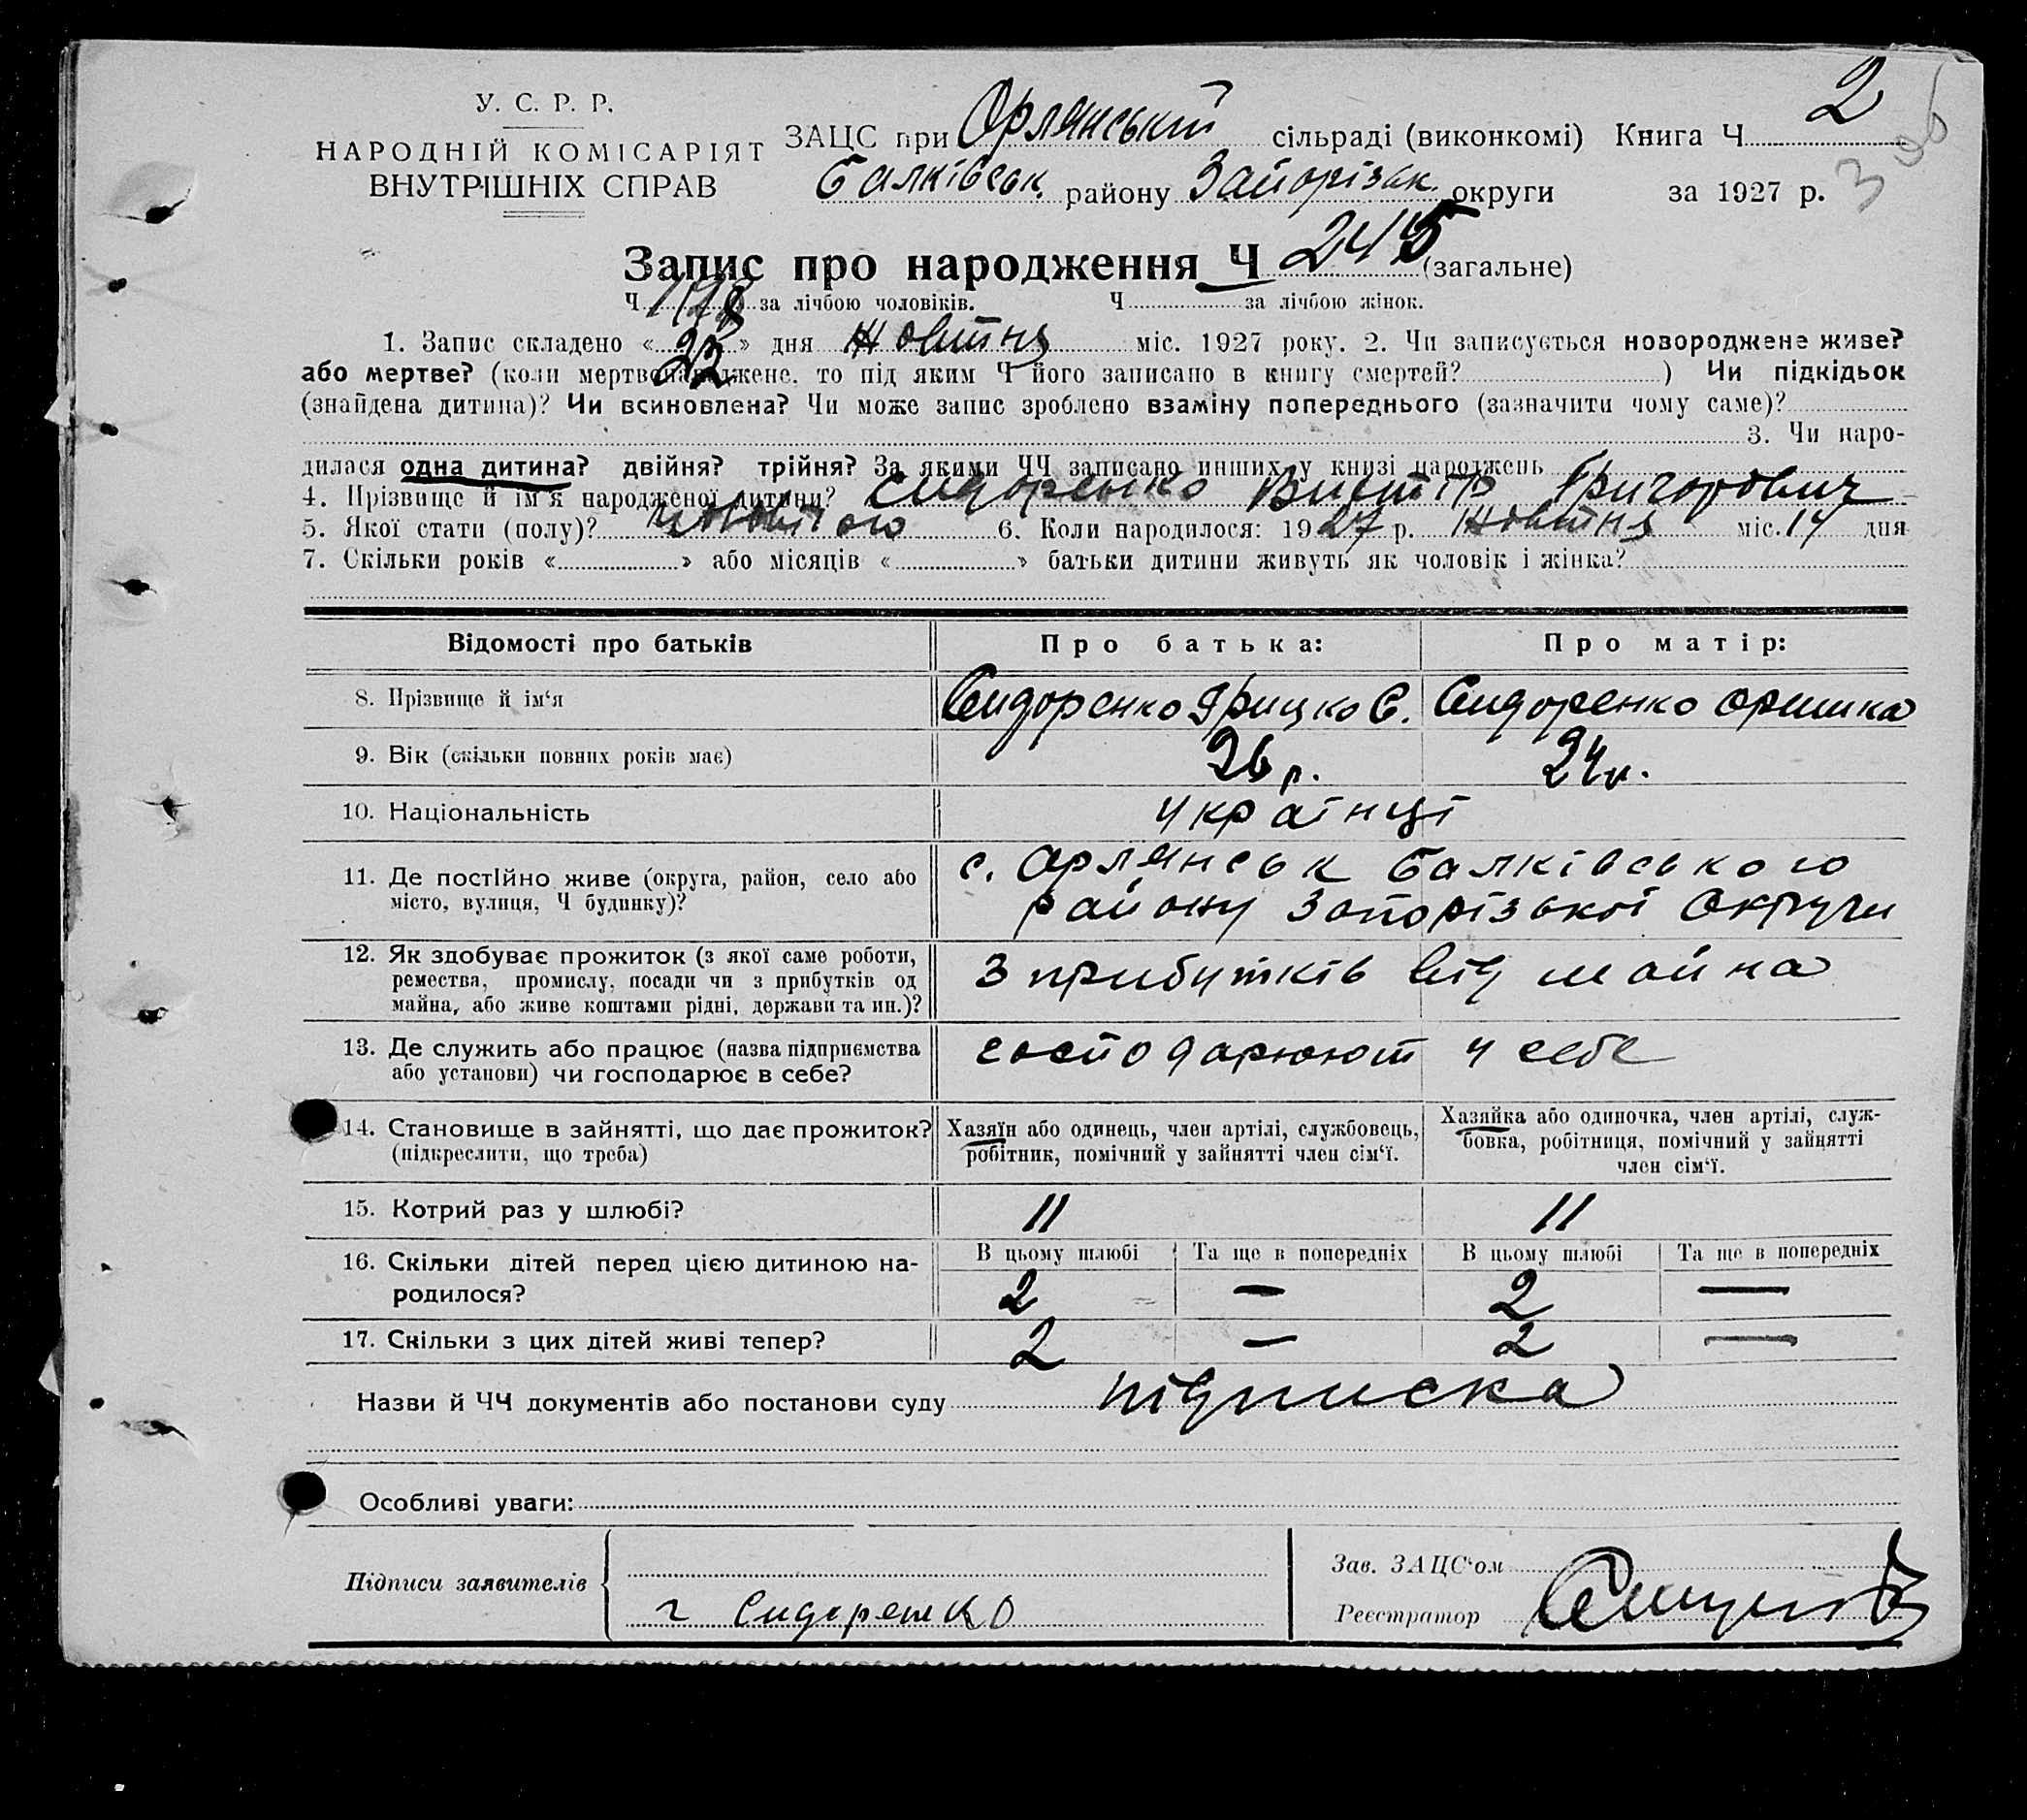 У. С. Р. Р.
НАРОДНІЙ КОМІСАРІЯТ
ВНУТРІШНІХ СПРАВ
ЗАЦС при Орлянській сільраді (виконкомі) Книга Ч 2
Балківськ. району Запорізьк. округи за 1927 р.
306
Запис про народження Ч 245 (загальне)
Ч 118 за лічбою чоловіків. Ч за лічбою жінок.
1. Запис складено « 22 » дня жовтня міс. 1927 року. 2. Чи записується новороджене живе?
або мертве? (коли мертвонароджене, то під яким Ч його записано в книгу смертей? ) Чи підкідьок
(знайдена дитина)? Чи всиновлена? Чи може запис зроблено взаміну попереднього (зазначити чому саме)?
3. Чи наро-
дилася одна дитина? двійня? трійня? За якими ЧЧ записано инших у книзі народжень
4. Прізвище й ім'я народженої дитини? Сидоренко Виктор Григорович
5. Якої стати (полу)? чоловічого 6. Коли народилося: 1927 р. жовтня міс. 14 дня
7. Скільки років « » або місяців « » батьки дитини живуть як чоловік і жінка?
Відомості про батьків Про батька: Про матір:
8. Прізвище й ім'я Сидоренко Грицко Є. Сидоренко Оришка
9. Вік (скільки повних років має) 26 р. 24 р.
10. Національність українці
11. Де постійно живе (округа, район, село або
місто, вулиця, Ч будинку)?
с. Орлянськ Балківського
району Запорізької Округи
12. Як здобуває прожиток (з якої саме роботи,
ремества, промислу, посади чи з прибутків од
майна, або живе коштами рідні, держави та ин.)?
З прибутків від майна
13. Де служить або працює (назва підприємства
або установи) чи господарює в себе?
господарюют у себе
14. Становище в зайнятті, що дає прожиток?
(підкреслити, що треба)
Хазяїн або одинець, член артілі, службовець,
робітник, помічний у зайнятті член сім'ї.
Хазяйка або одиночка, член артілі, служ-
бовка, робітниця, помічний у зайнятті
член сім'ї.
15. Котрий раз у шлюбі? II II
16. Скільки дітей перед цією дитиною на-
родилося?
В цьому шлюбі Та ще в попередніх В цьому шлюбі Та ще в попередніх
2 — 2 —
17. Скільки з цих дітей живі тепер? 2 — 2 —
Назви й ЧЧ документів або постанови суду підписка
Особливі уваги:
Підписи заявителів
г Сидоренко
Зав. ЗАЦС'ом
Реєстратор